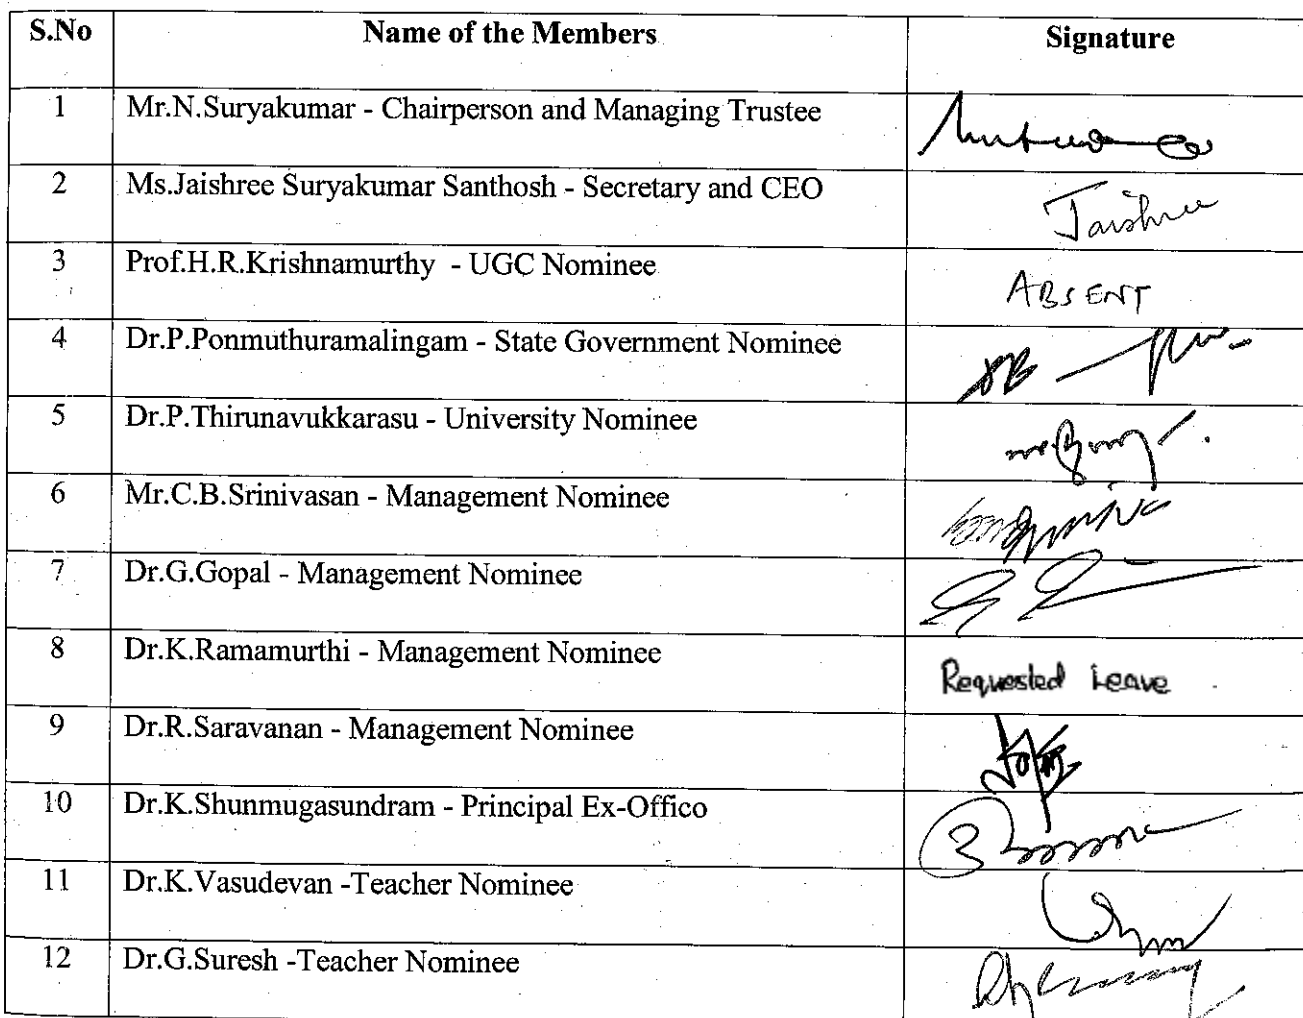 S.No Name of the Members Signature
1 Mr.N.Suryakumar - Chairperson and Managing Trustee
2 Ms.Jaishree Suryakumar Santhosh - Secretary and CEO Jaishree
3 Prof.H.R.Krishnamurthy - UGC Nominee ABSENT
4 Dr.P.Ponmuthuramalingam - State Government Nominee
5 Dr.P.Thirunavukkarasu - University Nominee
6 Mr.C.B.Srinivasan - Management Nominee
7 Dr.G.Gopal - Management Nominee
8 Dr.K.Ramamurthi - Management Nominee Requested Leave
9 Dr.R.Saravanan - Management Nominee
10 Dr.K.Shunmugasundram - Principal Ex-Offico
11 Dr.K.Vasudevan -Teacher Nominee
12 Dr.G.Suresh -Teacher Nominee